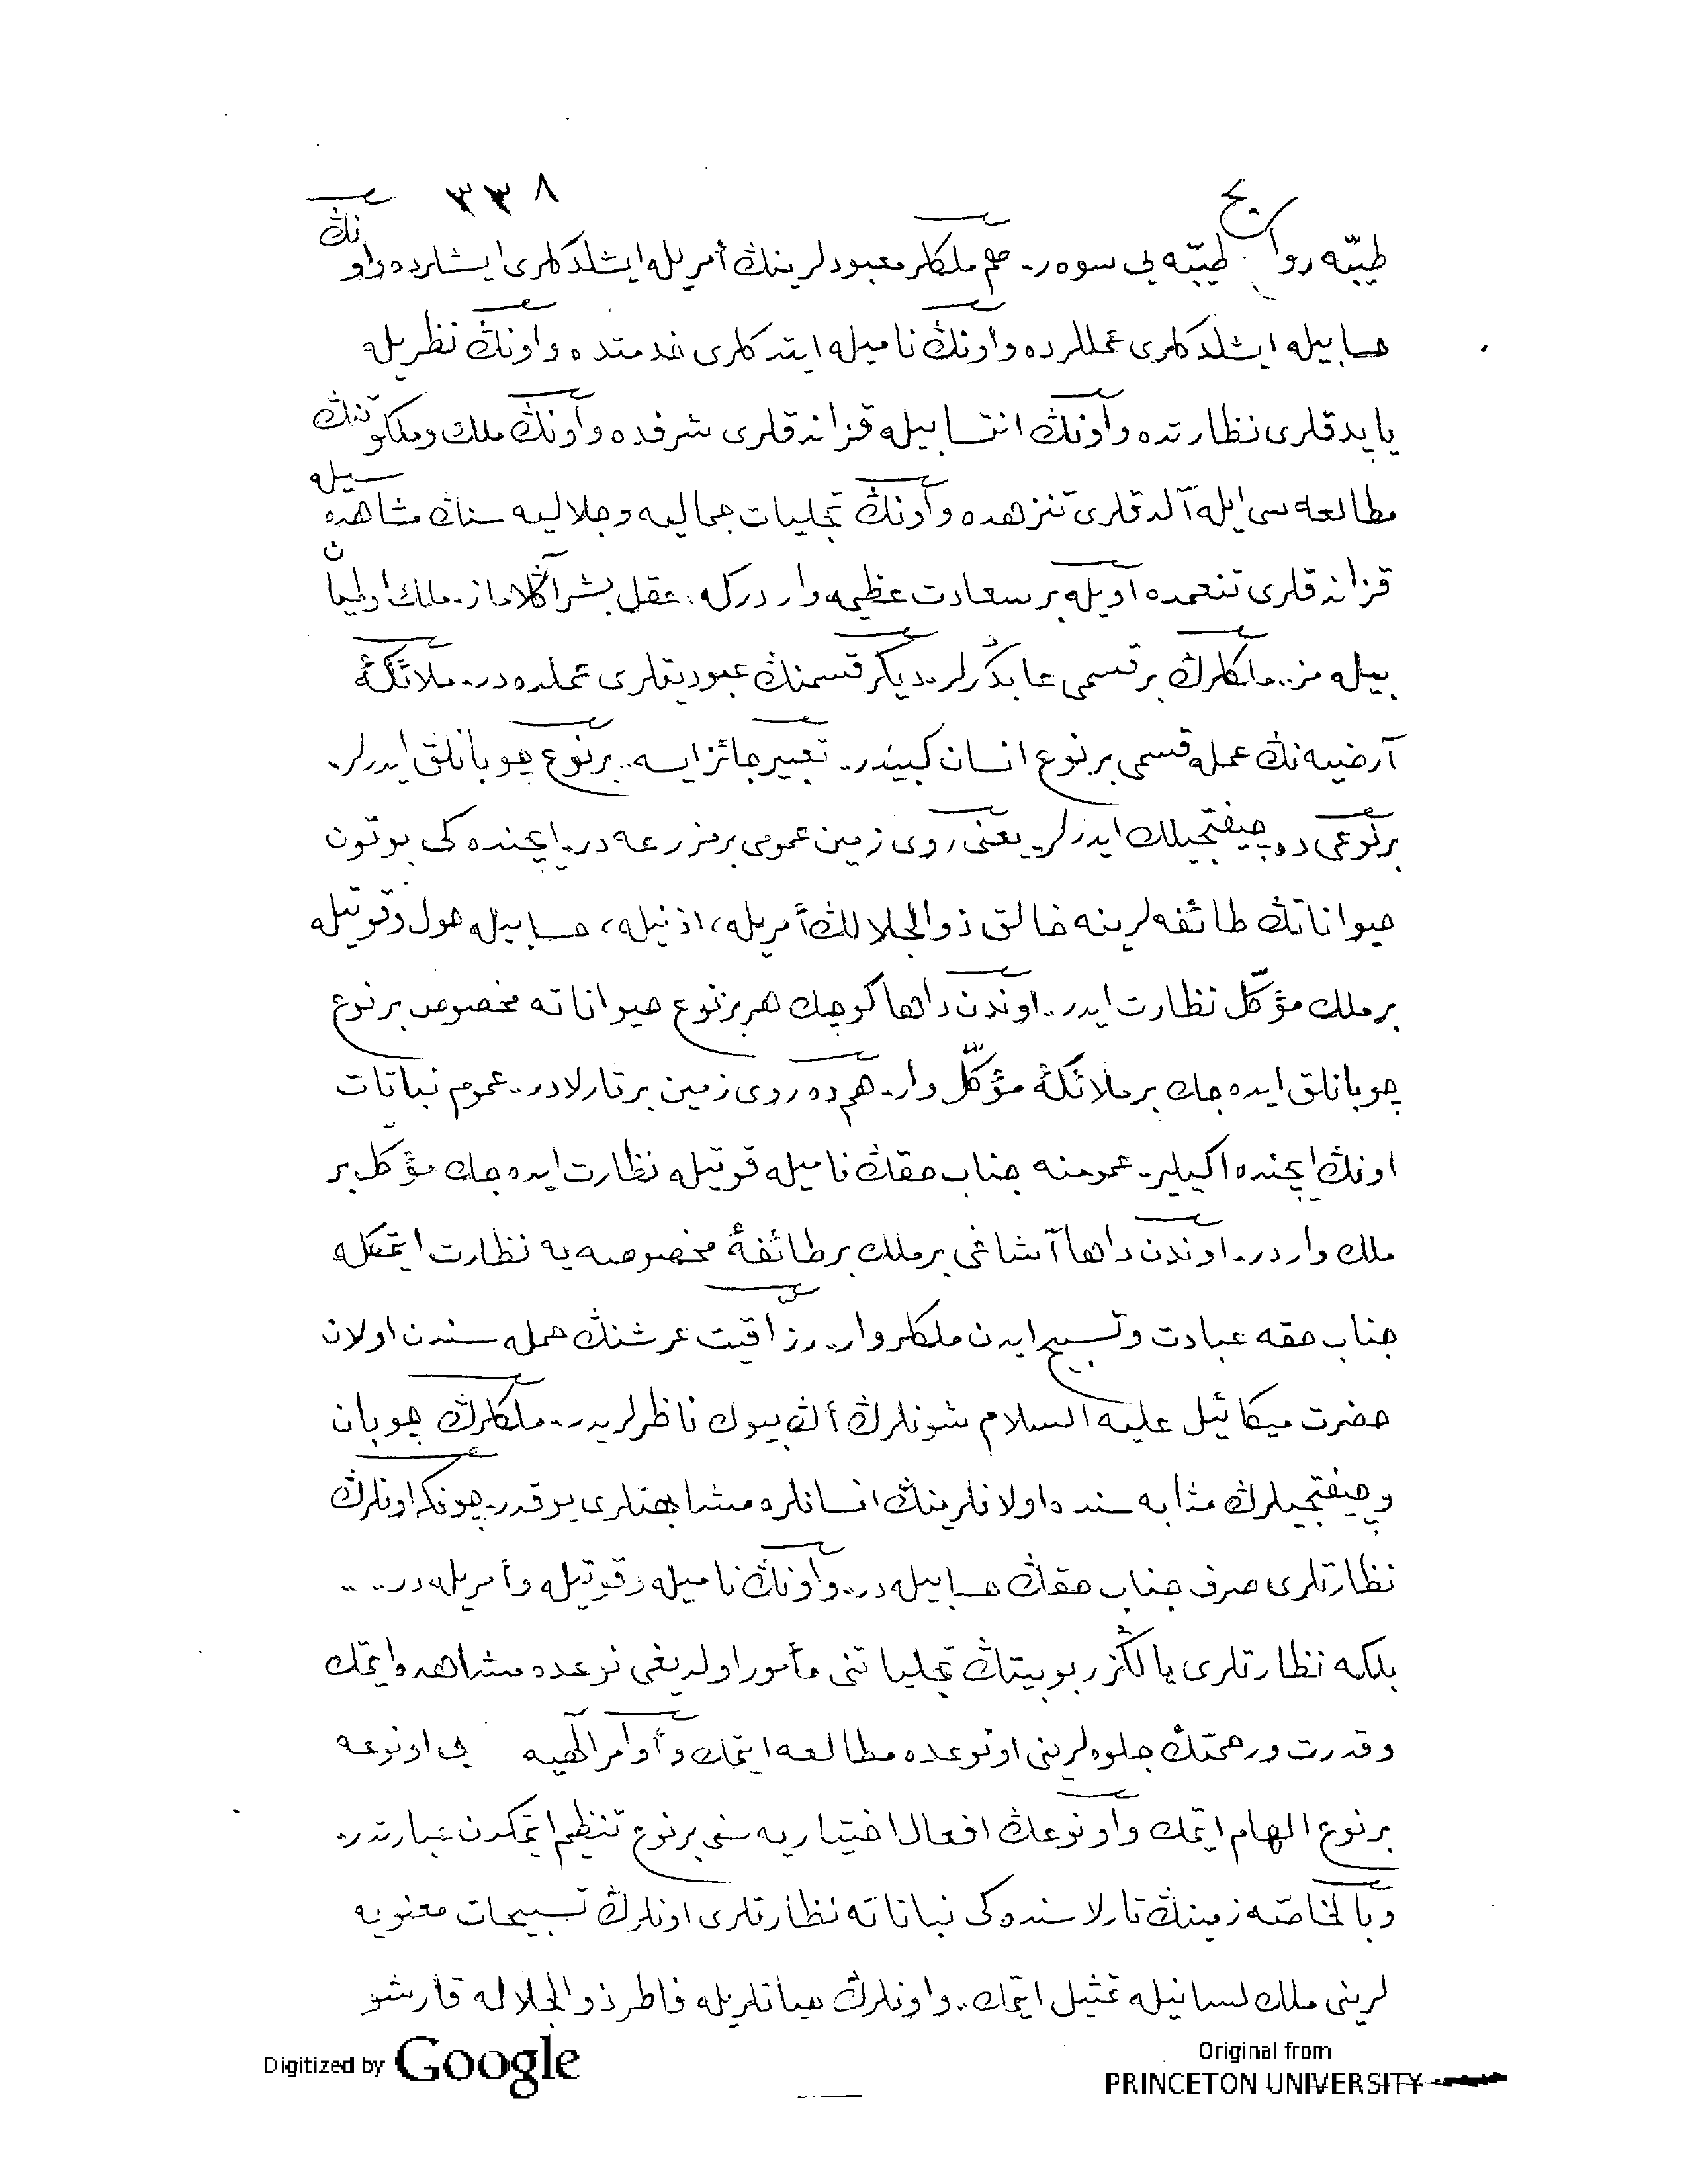 ٣٣٨
طيّبه روايح طيّبه يى سوەر. هم ملكلر معبودلرينڭ أمريله ايشلدكلرى ايشلرده واونڭ
حسابيله ايشلدكلرى عمللرده واونڭ ناميله ايتدكلرى خدمتده واونڭ نظريله
ياپدقلرى نظارتده واونڭ انتسابيله قزاندقلرى شرفده واونڭ ملك وملكوتنڭ
مطالعه سى ايله آلدقلرى تنزهده واونڭ تجليات جماليه وجلاليه سنڭ مشاهده سيله
قزاندقلرى تنعمده اويله بر سعادت عظيمه واردركه: عقل بشر آڭلاماز. ملك اولميان
بيله مز.. ملكلرڭ بر قسمى عابددرلر. ديگر قسمنڭ عبوديتلرى عملده در. ملائكۀ
أرضيه نڭ عمله قسمى بر نوع انسان كبيدر.. تعبير جائز ايسه.. بر نوع چوبانلق ايدرلر.
بر نوعى ده چيفتجيلك ايدرلر. يعنى روى زمين عمومى بر مزرعه در. ايچنده كى بوتون
حيواناتڭ طائفه لرينه خالق ذو الجلالڭ أمريله، اذنيله، حسابيله حول وقوتيله
بر ملك مؤكّل نظارت ايدر.. اوندن داها كوچك هر بر نوع حيواناته مخصوص بر نوع
چوبانلق ايده جك بر ملائكۀ مؤكّل وار. هم ده روى زمين بر تارلادر. عموم نباتات
اونڭ ايچنده اكيلير. عمومنه جناب حقڭ ناميله قوتيله نظارت ايده جك مؤكّل بر
ملك واردر. اوندن داها آشاغى بر ملك بر طائفۀ مخصوصه يه نظارت ايتمكله
جناب حقه عبادت وتسبيح ايدن ملكلر وار. رزّاقيت عرشنڭ حمله سندن اولان
حضرت ميكائيل عليه السلام شونلرڭ أڭ بيوك ناظرلريدر.. ملكلرڭ چوبان
و چيفتجيلرڭ مثابه سنده اولانلرينڭ انسانلره مشابهتلرى يوقدر. چونكه اونلرڭ
نظارتلرى صرف جناب حقڭ حسابيله در.. واونڭ ناميله وقوتيله وأمريله در....
بلكه نظارتلرى يالڭز ربوبيتڭ تجلياتنى مأمور اولديغى نوعده مشاهده ايتمك
وقدرت ورحمتڭ جلوه لرينى او نوعده مطالعه ايتمك وأوامر الٓهيه يى او نوعه
بر نوع الهام ايتمك واو نوعڭ افعال اختياريه سنى بر نوع تنظيم ايتمكدن عبارتدر.
وبالخاصّه زمينڭ تارلاسنده كى نباتاته نظارتلرى اونلرڭ تسبيحات معنويه
لرينى ملك لسانيله تمثيل ايتمك.. واونلرڭ حياتلريله فاطر ذو الجلاله قارشو
Digitized by Google
Original from
PRINCETON UNIVERSITY